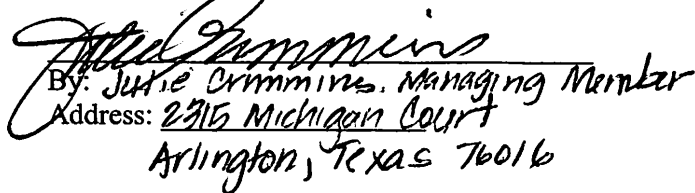 Julie Crimmins
By: Julie Crimmins, Managing Member
Address: 2315 Michigan Court
Arlington, Texas 76016